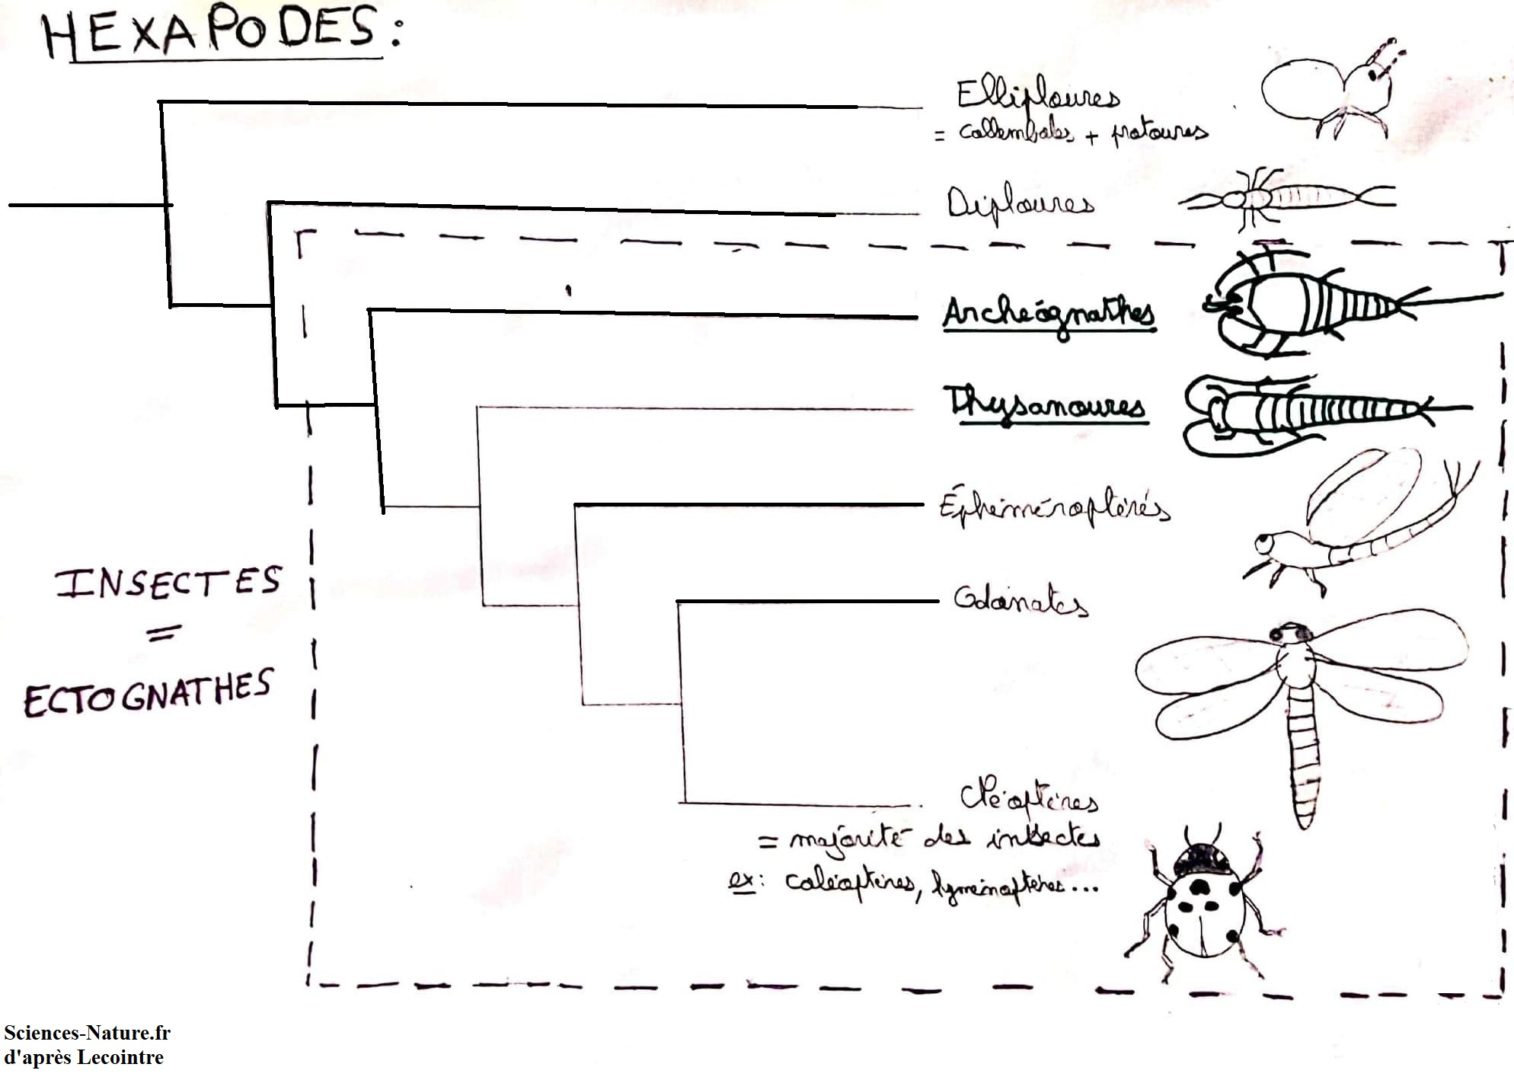 HEXAPODES :
Elliploures
= collemboles + protoures
Diploures
Archéognathes
Thysanoures
Éphéméroptérés
Odonates
INSECTES
=
ECTOGNATHES
Néoptères
= majorité des insectes
ex : coléoptères, hyménoptères...
Sciences-Nature.fr
d'après Lecointre